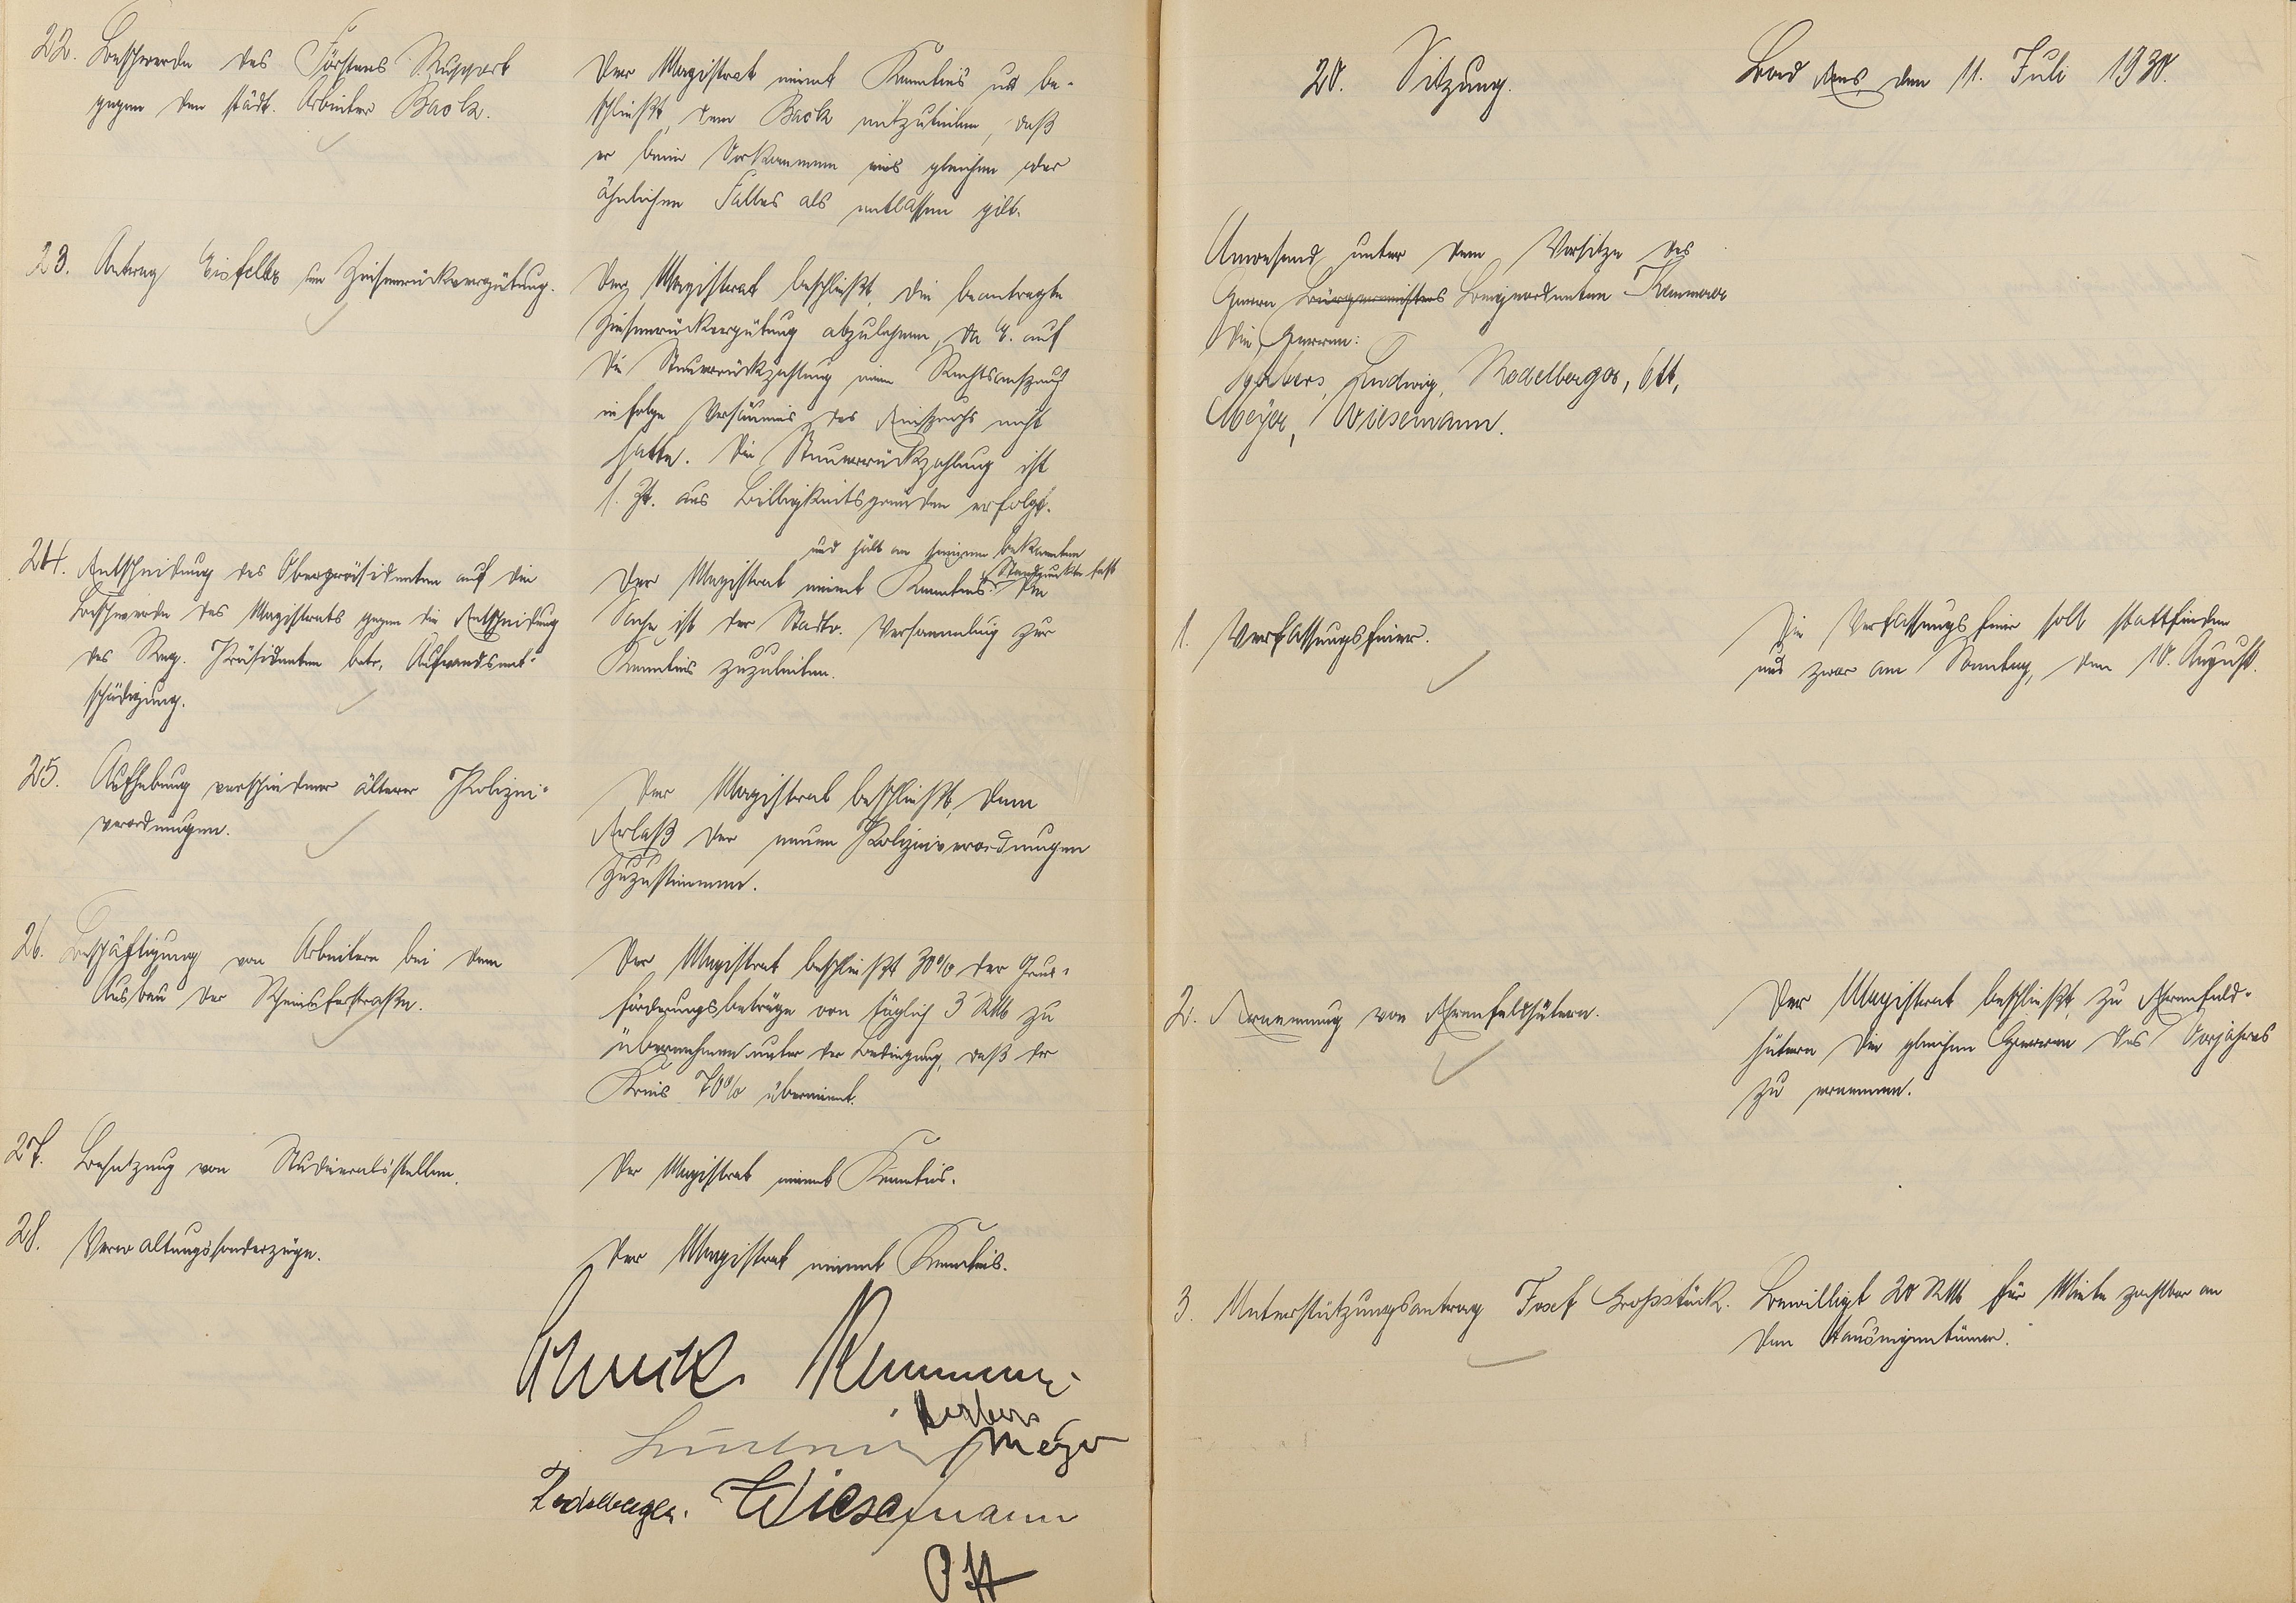 22. Beschwerde des Försters Ruppert
gegen den städt. Arbeiter Back.
Der Magistrat nimmt Kenntnis und be-
schließt, dem Back mitzuteilen, daß
er beim Vorkommen eines gleichen oder
ähnlichen Falles als entlassen gilt.
23. Antrag Eisfeller um Zinsenrückvergütung.
Der Magistrat beschließt, die beantragte
Zinsenrückvergütung abzulehnen, da E. auf
die Steuerrückzahlung einen Rechtsanspruch
infolge Versäumnis des Einspruchs nicht
hatte. Die Steuerrückzahlung ist
s. Zt. aus Billigkeitsgründen erfolgt.
24. Entscheidung des Oberpräsidenten auf die
Beschwerde des Magistrats gegen die Entscheidung
des Reg. Präsidenten betr. Aufwandsent-
schädigung.
und hält an seinem bekannten
Standpunkte fest
Der Magistrat nimmt Kenntnis. Die
Sache ist der Stadtv. Versammlung zur
Kenntnis zuzuleiten.
25. Aufhebung verschiedener älterer Polizei-
verordnungen.
Der Magistrat beschließt, dem
Erlaß der neuen Polizeiverordnungen
zuzustimmen.
26. Beschäftigung von Arbeitern bei dem
Ausbau der Rheinuferstraße.
Der Magistrat beschließt 30% der
förderungsbeträge von täglich 3 RM zu
übernehmen unter der Bedingung, daß der
Kreis 70% übernimmt.
27. Besetzung von Studienratsstellen.
Der Magistrat nimmt Kenntnis.
28. Verwaltungssonderzüge.
Der Magistrat nimmt Kenntnis.
Kemmer
Gerbers
Ludwig Meyer
Rodelberger. Wiesemann
Ott
20. Sitzung.
Bad Ems, den 11. Juli 1930.
Anwesend unter dem Vorsitze des
Herrn Bürgermeisters Beigeordneten Kemmer
die Herren:
Gerbers, Ludwig, Rodelberger, Ott,
Meyer, Wiesemann.
1. Verfassungsfeier.
Die Verfassungsfeier soll stattfinden
und zwar am Sonntag, den 10. August.
2. Ernennung von Ehrenfeldhütern.
Der Magistrat beschließt, zu Ehrenfeld-
hütern die gleichen Herren des Vorjahres
zu ernennen.
3. Unterstützungsantrag Josef Großstück.
Bewilligt 20 RM für Miete zahlbar an
den Hauseigentümer.